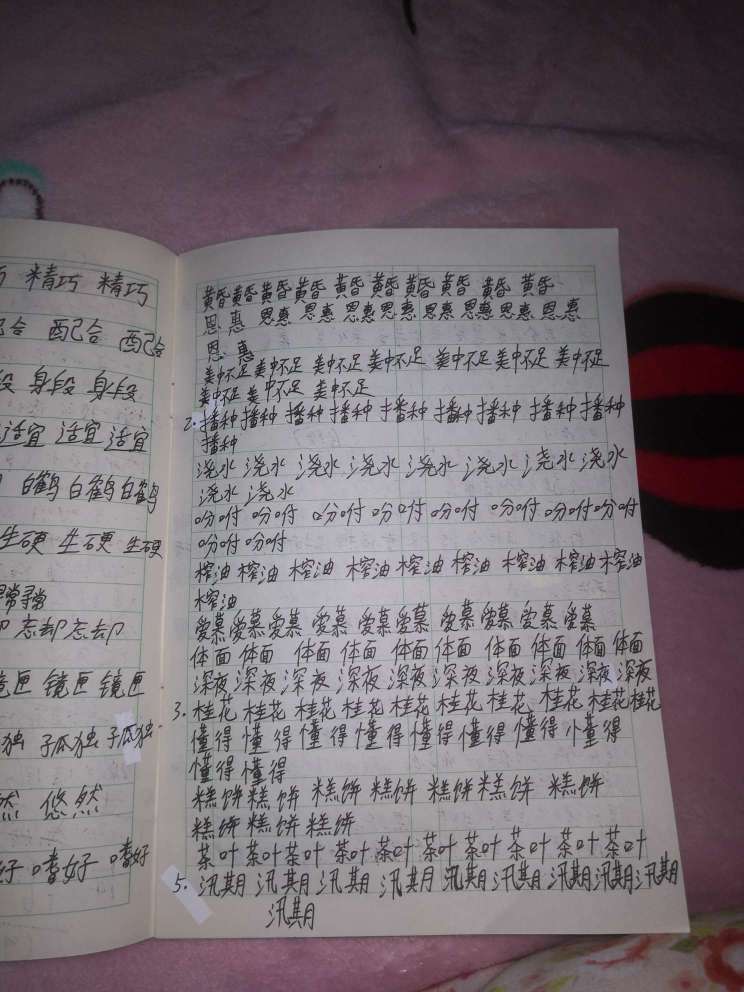 精巧 精巧
配合 配合
身段 身段
适宜 适宜 适宜
白鹤 白鹤 白鹤
生硬 生硬 生硬
寻常
忘却 忘却
镜匣 镜匣
孤独 孤独
悠然
嗜好 嗜好
黄昏 黄昏 黄昏 黄昏 黄昏 黄昏 黄昏 黄昏 黄昏 黄昏
恩惠 恩惠 恩惠 恩惠 恩惠 恩惠 恩惠 恩惠 恩惠
恩惠
美中不足 美中不足 美中不足 美中不足 美中不足 美中不足 美中不足
美中不足 美中不足 美中不足
2. 播种 播种 播种 播种 播种 播种 播种 播种 播种
播种
浇水 浇水 浇水 浇水 浇水 浇水 浇水 浇水
浇水 浇水
吩咐 吩咐 吩咐 吩咐 吩咐 吩咐 吩咐 吩咐
吩咐 吩咐
榨油 榨油 榨油 榨油 榨油 榨油 榨油 榨油 榨油
榨油
爱慕 爱慕 爱慕 爱慕 爱慕 爱慕 爱慕 爱慕 爱慕 爱慕
体面 体面 体面 体面 体面 体面 体面 体面 体面 体面
深夜 深夜 深夜 深夜 深夜 深夜 深夜 深夜 深夜 深夜
3. 桂花 桂花 桂花 桂花 桂花 桂花 桂花 桂花 桂花 桂花
懂得 懂得 懂得 懂得 懂得 懂得 懂得 懂得
懂得 懂得
糕饼 糕饼 糕饼 糕饼 糕饼 糕饼 糕饼
糕饼 糕饼 糕饼
茶叶 茶叶 茶叶 茶叶 茶叶 茶叶 茶叶 茶叶 茶叶 茶叶
5. 汛期 汛期 汛期 汛期 汛期 汛期 汛期 汛期 汛期
汛期